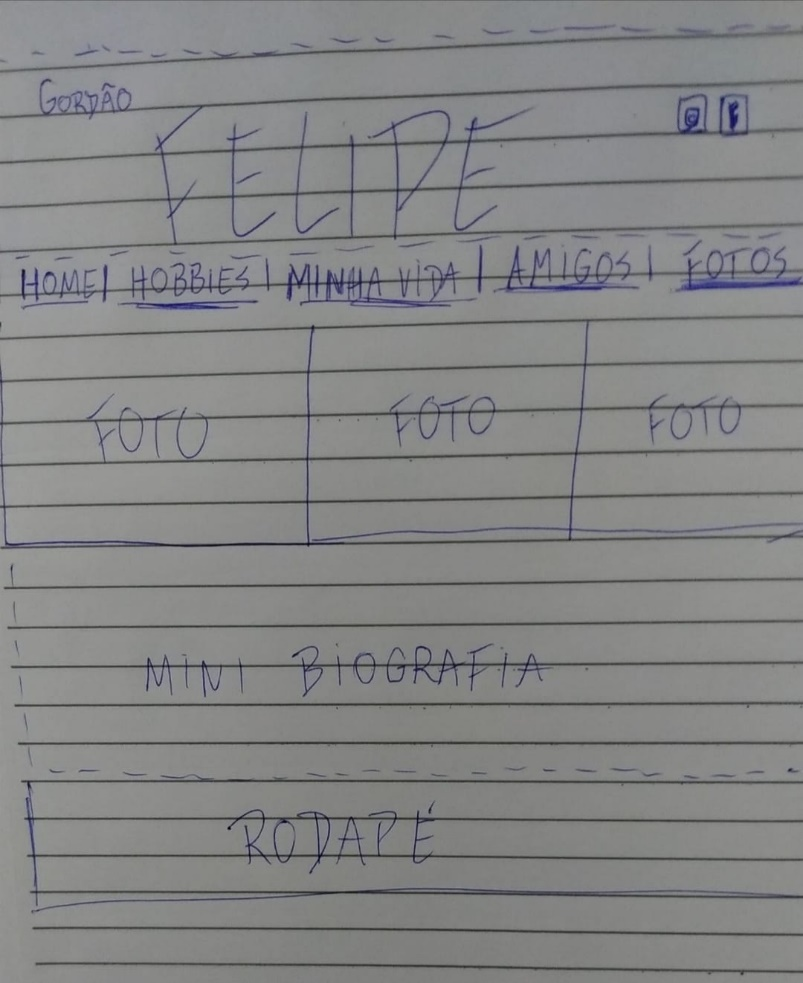 GORDÃO
FELIPE
HOME | HOBBIES | MINHA VIDA | AMIGOS | FOTOS
FOTO FOTO FOTO
MINI BIOGRAFIA
RODAPÉ